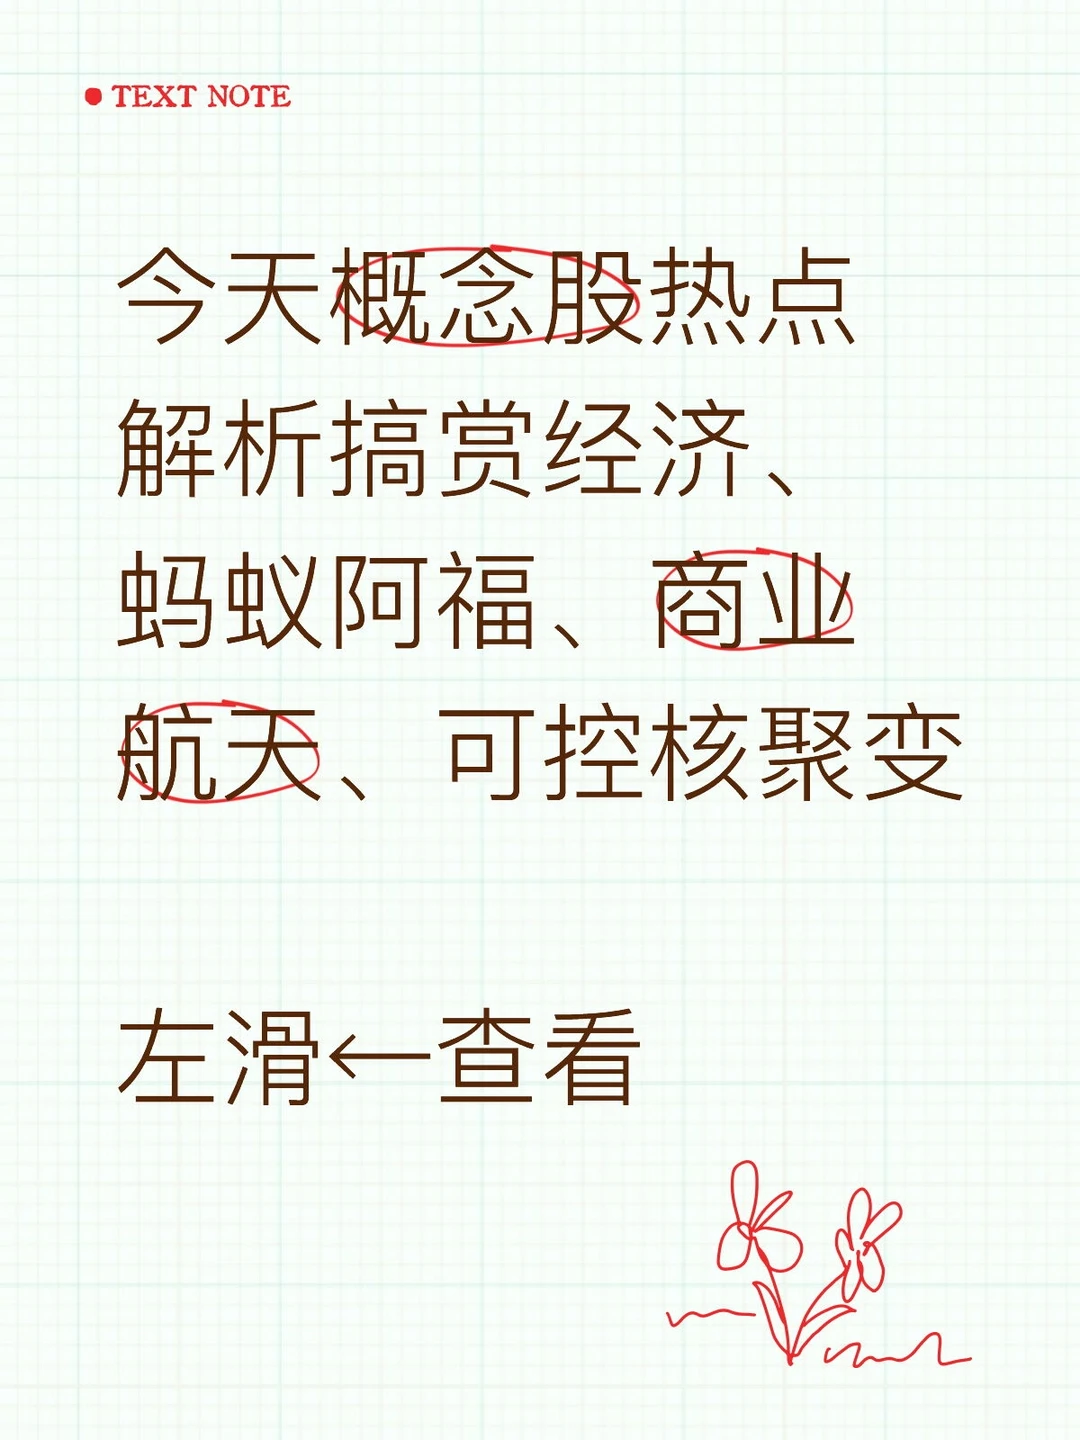 TEXT NOTE
今天概念股热点
解析搞赏经济、
蚂蚁阿福、商业
航天、可控核聚变
左滑←查看